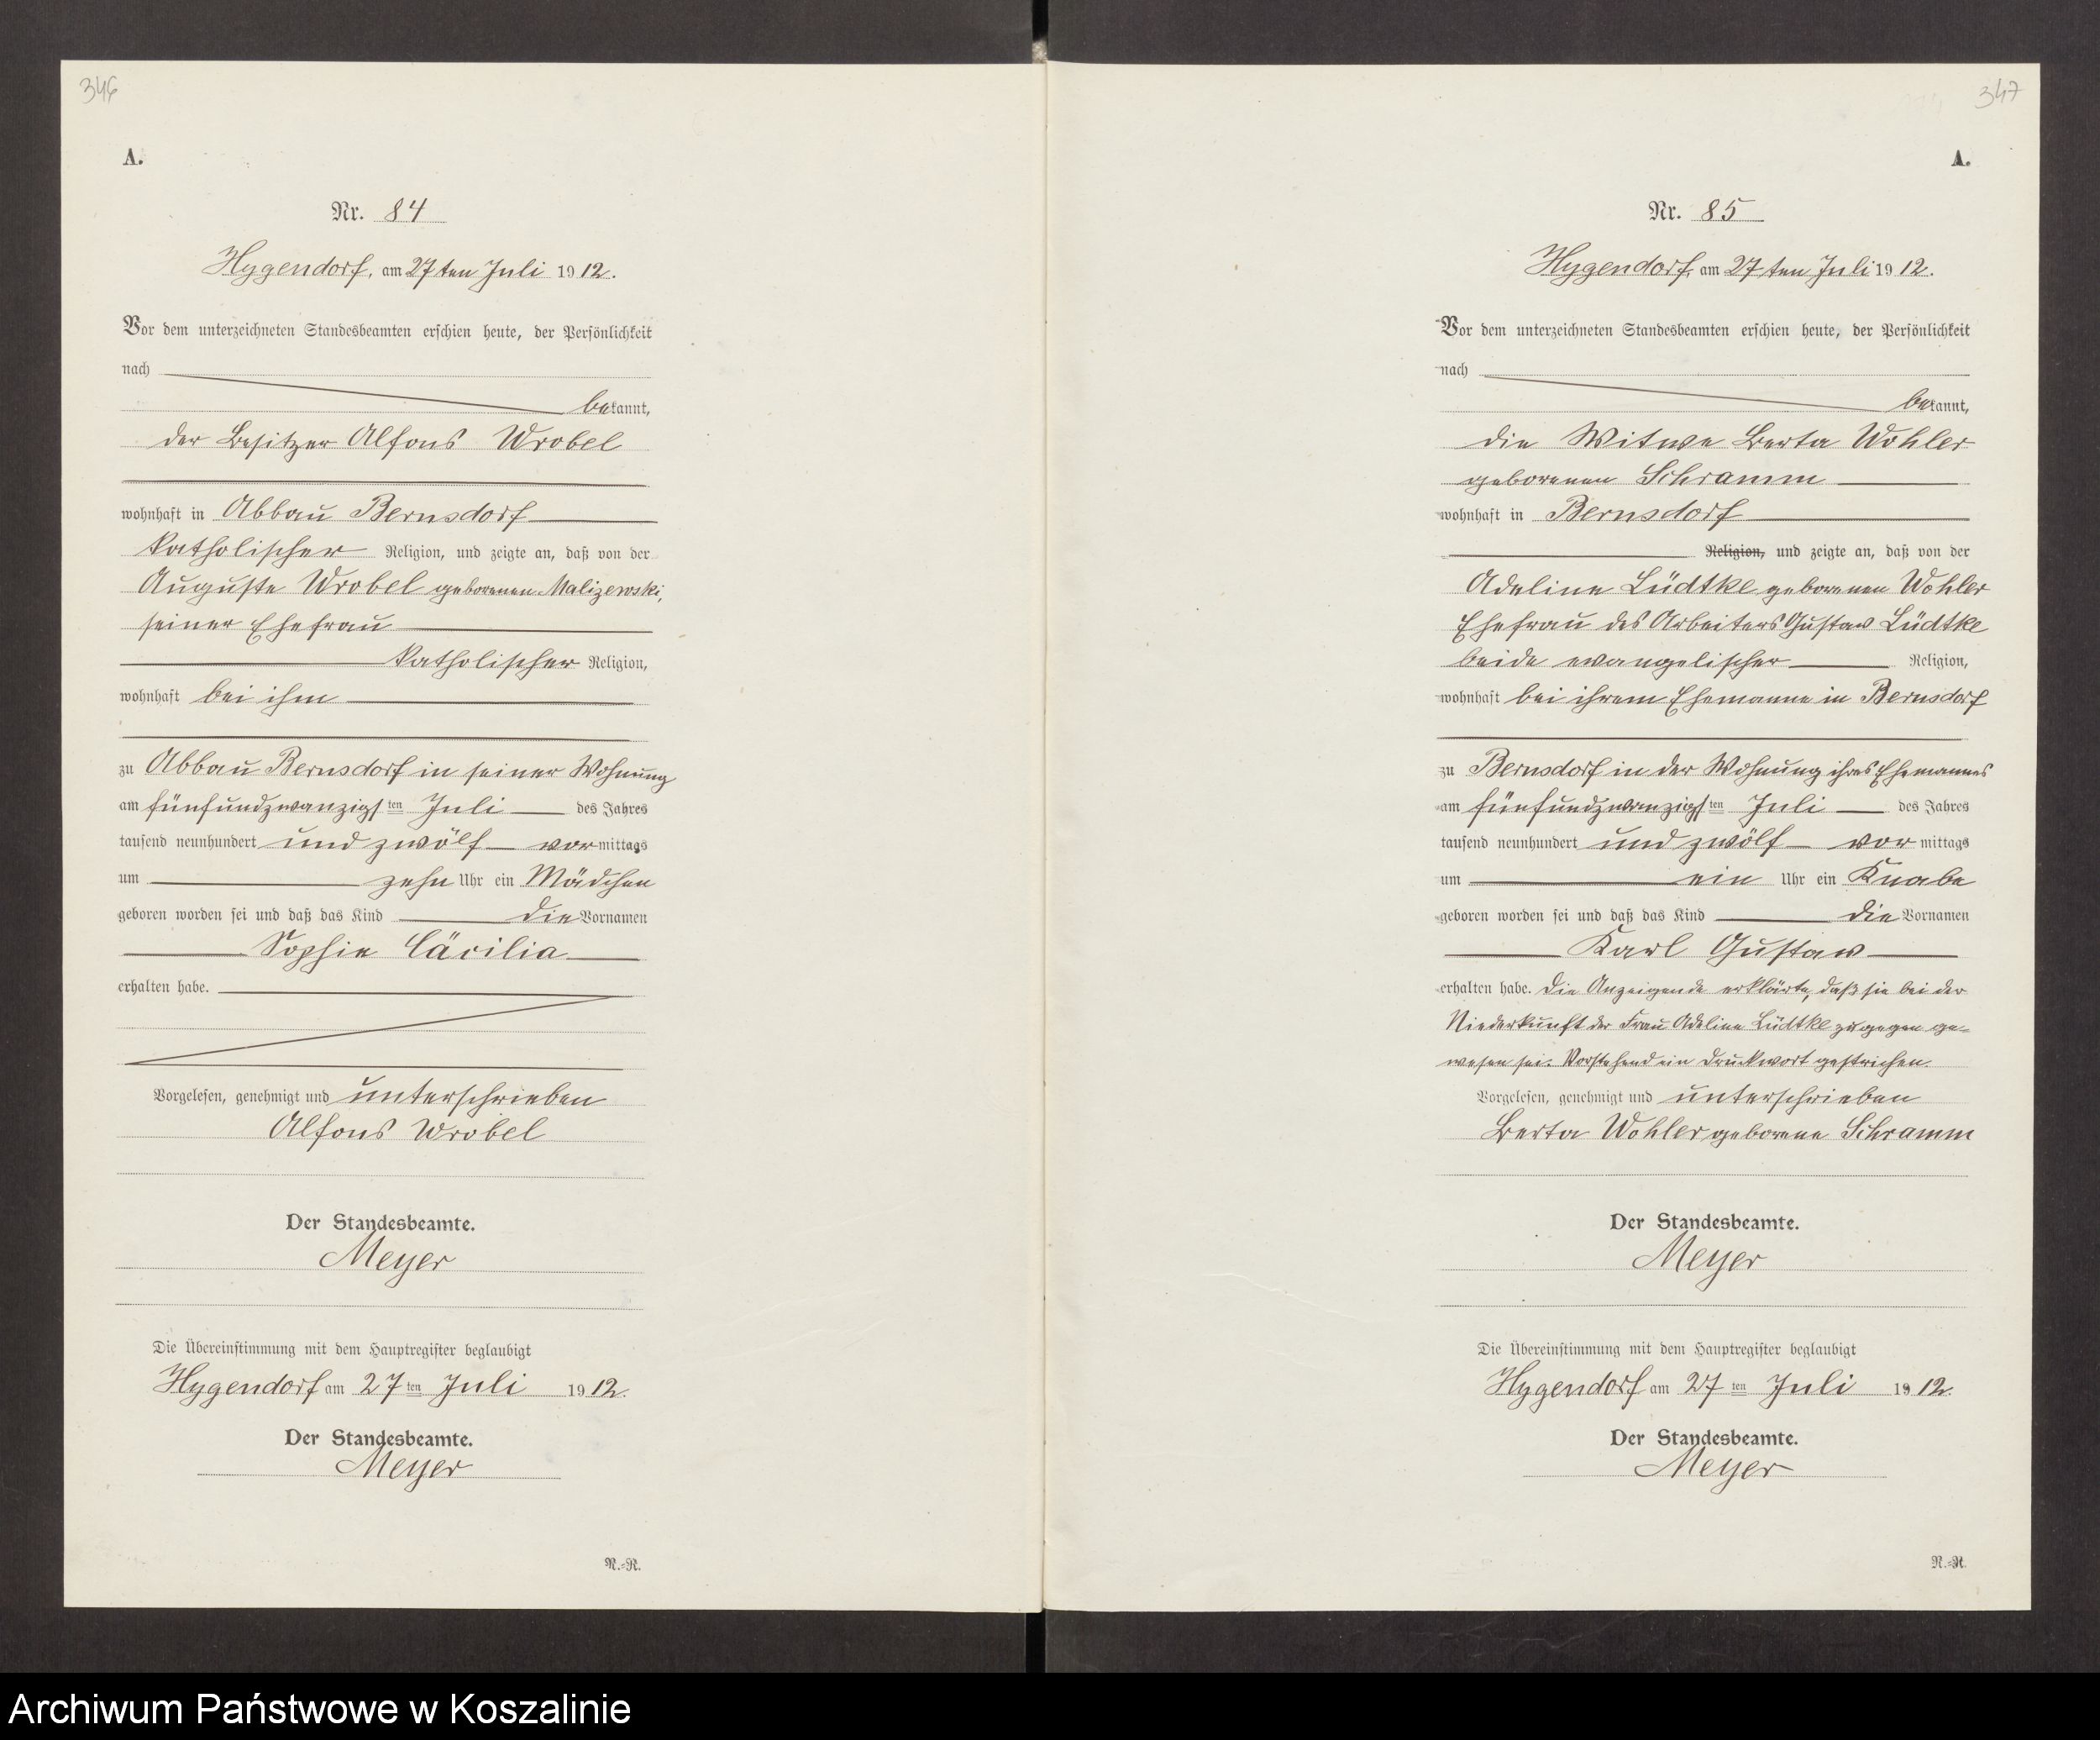 346
A.
Nr. 84
Hygendorf, am 27ten Juli 1912.
Vor dem unterzeichneten Standesbeamten erschien heute, der Persönlichkeit
nach
bekannt,
der Besitzer Alfons Wrobel
wohnhaft in Abbau Bernsdorf
katholischer Religion, und zeigte an, daß von der
Auguste Wrobel geborenen Malizewski,
seiner Ehefrau
katholischer Religion,
wohnhaft bei ihm
zu Abbau Bernsdorf in seiner Wohnung
am fünfundzwanzigsten Juli des Jahres
tausend neunhundert und zwölf vormittags
um zehn Uhr ein Mädchen
geboren worden sei und daß das Kind die Vornamen
Sophie Cäcilia
erhalten habe.
Vorgelesen, genehmigt und unterschrieben
Alfons Wrobel
Der Standesbeamte.
Meyer
Die Übereinstimmung mit dem Hauptregister beglaubigt
Hygendorf am 27ten Juli 1912.
Der Standesbeamte.
Meyer
N.=R.
347
A.
Nr. 85
Hygendorf, am 27ten Juli 1912.
Vor dem unterzeichneten Standesbeamten erschien heute, der Persönlichkeit
nach
bekannt,
die Witwe Berta Wohler
geborenen Schramm
wohnhaft in Bernsdorf
Religion, und zeigte an, daß von der
Adeline Lüdtke geborenen Wohler
Ehefrau des Arbeiters Gustav Lüdtke
beide evangelischer Religion,
wohnhaft bei ihrem Ehemanne in Bernsdorf
zu Bernsdorf in der Wohnung ihres Ehemannes
am fünfundzwanzigsten Juli des Jahres
tausend neunhundert und zwölf vormittags
um ein Uhr ein Knabe
geboren worden sei und daß das Kind die Vornamen
Karl Gustav
erhalten habe. Die Anzeigende erklärte, daß sie bei der
Niederkunft der Frau Adeline Lüdtke zugegen ge=
wesen sei. Vorstehend ein Druckwort gestrichen.
Vorgelesen, genehmigt und unterschrieben
Berta Wohler geborene Schramm
Der Standesbeamte.
Meyer
Die Übereinstimmung mit dem Hauptregister beglaubigt
Hygendorf am 27ten Juli 1912.
Der Standesbeamte.
Meyer
N.=R.
Archiwum Państwowe w Koszalinie